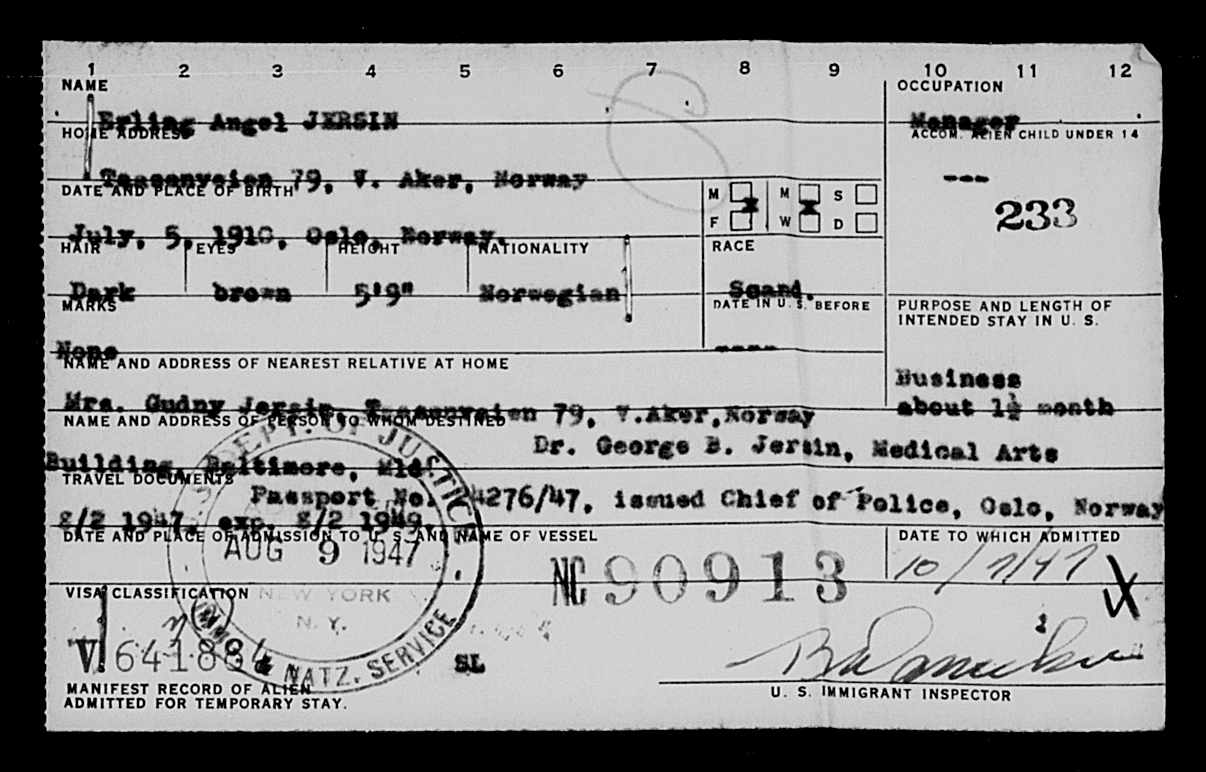 1 2 3 4 5 6 7 8 9 10 11 12
NAME
OCCUPATION
Erling Angel JERSIN
Manager
HOME ADDRESS
ACCOM. ALIEN CHILD UNDER 14
Taasenveien 79, V. Aker, Norway
---
DATE AND PLACE OF BIRTH
M M S
F W D
x x
233
July, 5, 1910, Oslo, Norway.
HAIR EYES HEIGHT NATIONALITY RACE
Dark brown 5'9" Norwegian Scand.
MARKS
DATE IN U. S. BEFORE
PURPOSE AND LENGTH OF
INTENDED STAY IN U. S.
None
----
NAME AND ADDRESS OF NEAREST RELATIVE AT HOME
Business
about 1½ month
Mrs. Gudny Jersin, Taasenveien 79, V.Aker,Norway
NAME AND ADDRESS OF PERSON TO WHOM DESTINED
Dr. George B. Jersin, Medical Arts
Building, Baltimore, Mld.
TRAVEL DOCUMENTS
Passport No. 24276/47, issued Chief of Police, Oslo, Norway
8/2 1947, exp. 8/2 1949.
DATE AND PLACE OF ADMISSION TO U. S. AND NAME OF VESSEL
DATE TO WHICH ADMITTED
U.S. DEPT. OF JUSTICE
AUG 9 1947
NEW YORK
N. Y.
IMMG. & NATZ. SERVICE
NC 90913
10/7/47
X
VISA CLASSIFICATION
V. 641884
SL
MANIFEST RECORD OF ALIEN
ADMITTED FOR TEMPORARY STAY.
U. S. IMMIGRANT INSPECTOR